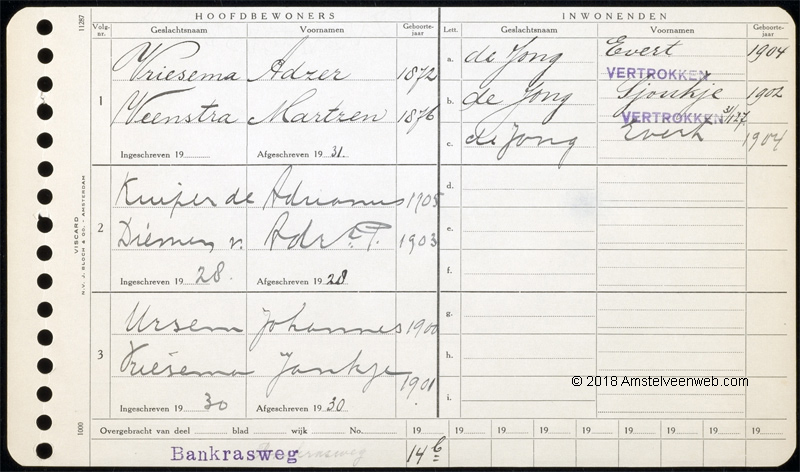 HOOFDBEWONERS
INWONENDEN
Volg-nr. Geslachtsnaam Voornamen Geboorte-jaar Lett. Geslachtsnaam Voornamen Geboorte-jaar
1
Vriesema Adzer 1872
Veenstra Martzen 1876
Ingeschreven 19 Afgeschreven 19 31.
a. de Jong Evert 1904
VERTROKKEN
b. de Jong Sjoukje 1902
VERTROKKEN 31/127
c. de Jong Evert 1904
2
Kuiper de Adrianus 1905
Diemen, v. Adr 1903
Ingeschreven 19 28. Afgeschreven 19 28
d.
e.
f.
3
Ursem Johannes 1900
Vriesema Jankje 1901
Ingeschreven 19 30 Afgeschreven 19 30
g.
h.
i.
© 2018 Amstelveenweb.com
Overgebracht van deel blad wijk No. 19 19 19 19 19 19 19 19 19
Bankrasweg 14
11287
VISCARD
N.V. J. BLOCH & CO. - AMSTERDAM
1000